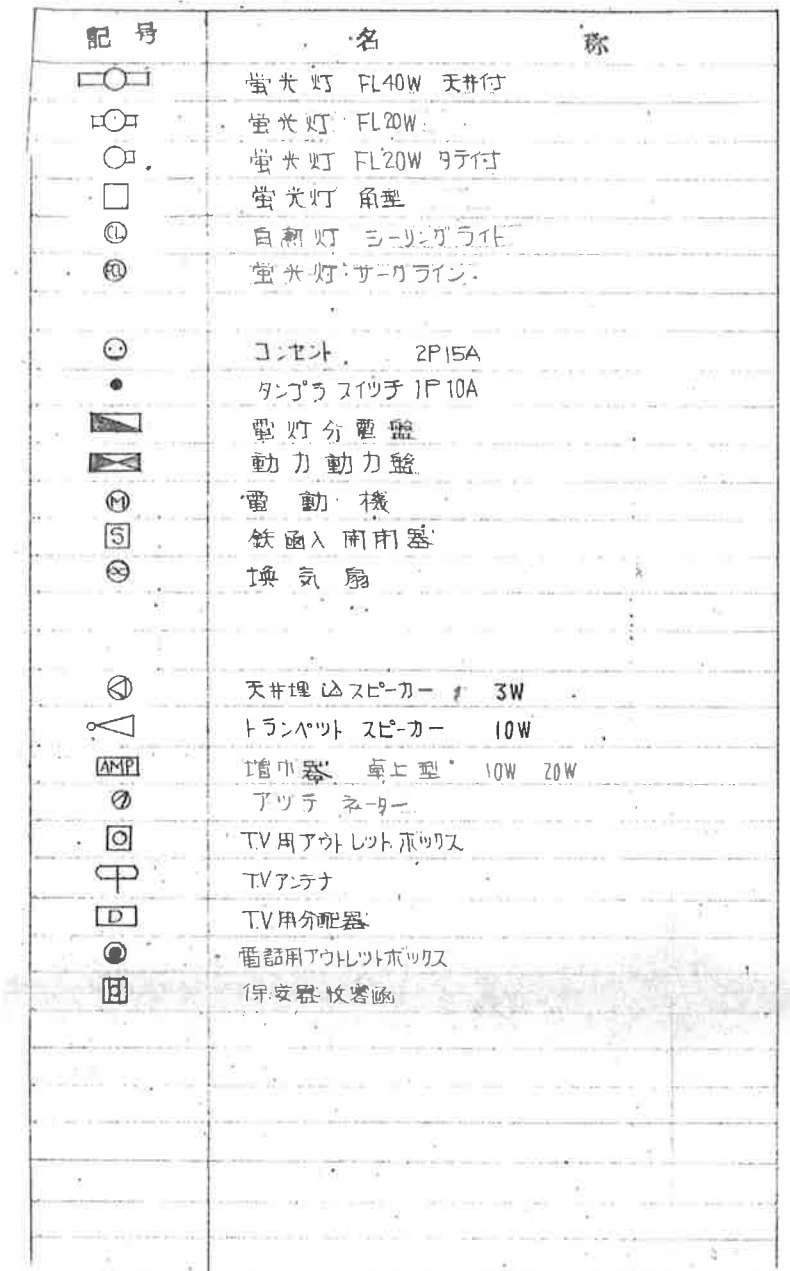 記号 名称
蛍光灯 FL40W 天井付
蛍光灯 FL20W
蛍光灯 FL20W タテ付
蛍光灯 角型
CL 白熱灯 シーリングライト
FCL 蛍光灯 サークライン
コンセント 2P15A
タンブラスイッチ 1P10A
電灯分電盤
動力動力盤
M 電動機
S 鉄函入開閉器
換気扇
天井埋込スピーカー 3W
トランペットスピーカー 10W
AMP 増巾器 卓上型 10W 20W
アッテネーター
T.V用アウトレットボックス
T.Vアンテナ
D T.V用分配器
電話用アウトレットボックス
保安器收容函